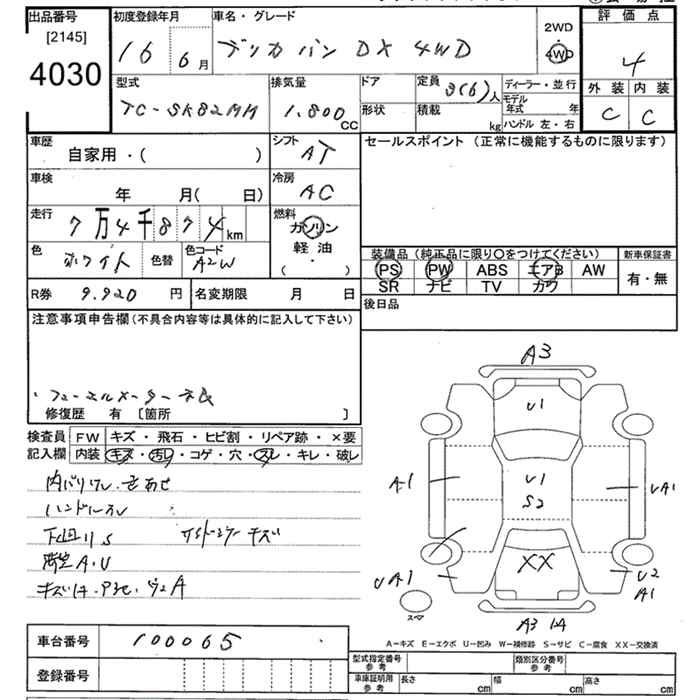 出品番号 初度登録年月 車名・グレード 評価点
[2145]
4030
16 6月 デリカバン DX 4WD 2WD 4WD 4
型式 排気量 ドア 定員 3(6)人 ディーラー・並行 外装 内装
TC-SK82MM 1.800CC 形状 積載 kg モデル年式 年 ハンドル 左・右 C C
車歴 自家用・( ) シフト AT セールスポイント (正常に機能するものに限ります)
車検 年 月( 日) 冷房 AC
走行 7万4千874km 燃料 ガソリン
軽油
( ・ )
色 ホワイト 色替 色コード A2W
装備品 (純正品に限り○をつけてください) 新車保証書
PS PW ABS エアB AW 有・無
SR ナビ TV カワ
R券 9.920円 名変期限 月 日 後日品
注意事項申告欄 (不具合内容等は具体的に記入して下さい)
・フューエルメーター不良
修復歴 有 [箇所 ]
検査員 FW キズ・飛石・ヒビ割・リペア跡・×要
記入欄 内装 キズ・汚レ・コゲ・穴・スレ・キレ・破レ
ハンドルスレ
下回りS
A3
U1
A1 U1 UA1
S2
XX
UA1 U2
A1
スペア
A3
A-キズ E-エクボ U-凹み W-補修跡 S-サビ C-腐食 XX-交換済
車台番号 100065
登録番号
型式指定番号 参考 類別区分番号 参考
車庫証明用 参考 長さ cm 幅 cm 高さ cm